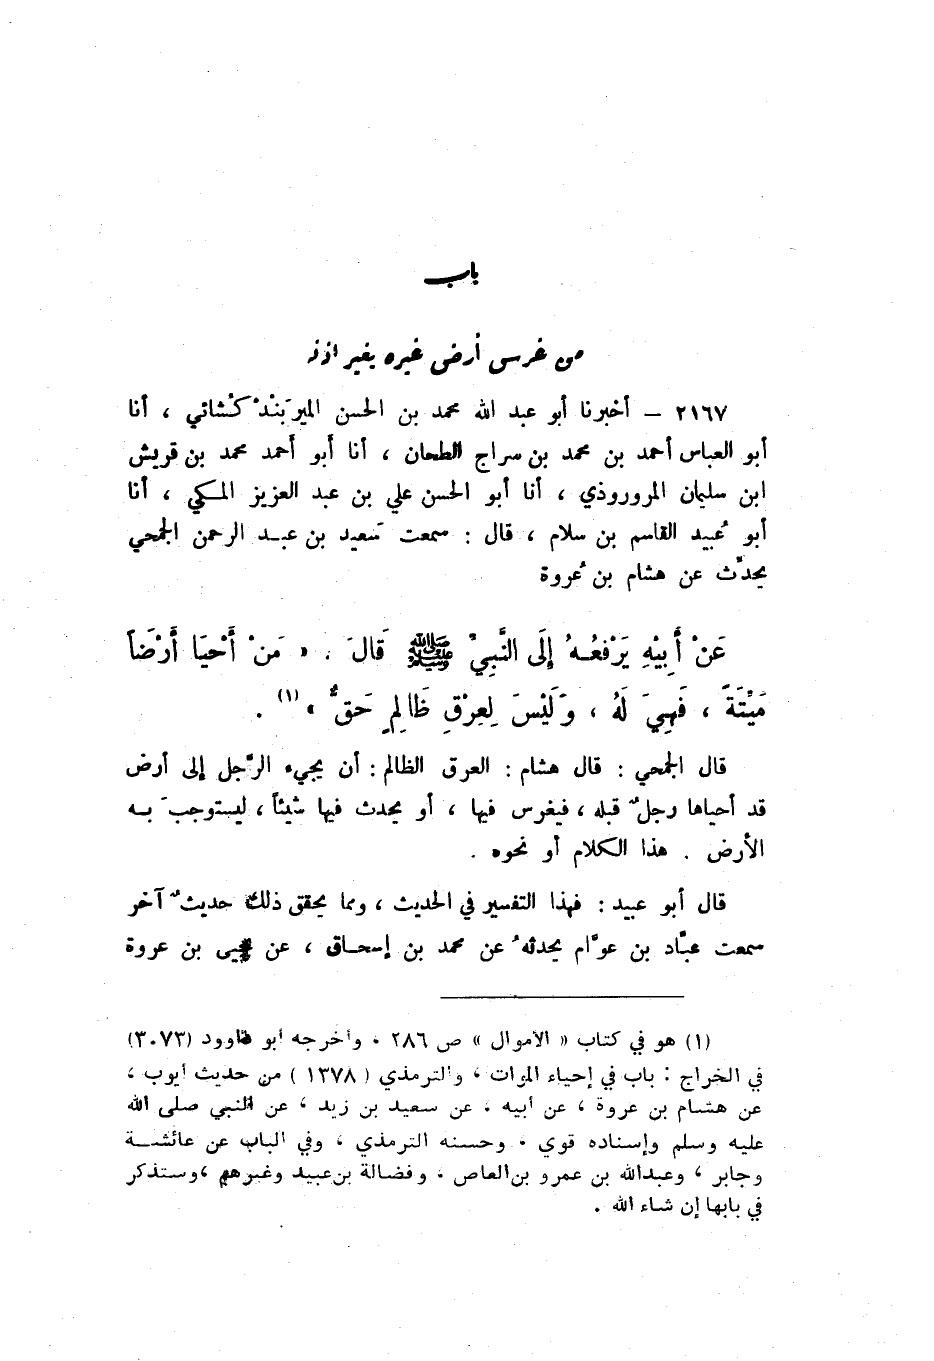 باب
من غرس أرض غيره بغير اذنه
٢١٦٧ – أخبرنا أبو عبد الله محمد بن الحسن المير بَنْدْ كُشائي ، أنا
أبو العباس أحمد بن محمد بن سراج الطحان ، أنا أبو أحمد محمد بن قريش
ابن سليمان المروروذي ، أنا أبو الحسن علي بن عبد العزيز المكي ، أنا
أبو عُبيد القاسم بن سلام ، قال : سمعت سَعيد بن عبد الرحمن الجمحي
يحدِّث عن هشام بن عُروة
عَنْ أَبِيْهِ يَرْفَعُهُ إِلَى النَّبِيِّ ﷺ قَالَ : « مَنْ أَحْيَا أَرْضَاً
مَيْتَةً ، فَهِيَ لَهُ ، وَلَيْسَ لِعِرْقٍ ظَالِمٍ حَقٌّ » (١) .
قال الجمحي : قال هشام : العرق الظالم : أن يجيء الرَّجل إلى أرض
قد أحياها رجلٌ قبله ، فيغرس فيها ، أو يحدث فيها شيئاً ، ليستوجبَ به
الأرض . هذا الكلام أو نحوه .
قال أبو عبيد : فهذا التفسير في الحديث ، ومما يحقق ذلك حديثٌ آخر
سمعت عبَّاد بن عوَّام يحدثهُ عن محمد بن إسحاق ، عن يحيى بن عروة
(١) هو في كتاب « الأموال » ص ٢٨٦ ، وأخرجه أبو داوود (٣٠٧٣)
في الخراج : باب في إحياء الموات ، والترمذي ( ١٣٧٨ ) من حديث أيوب ،
عن هشام بن عروة ، عن أبيه ، عن سعيد بن زيد ، عن النبي صلى الله
عليه وسلم وإسناده قوي ، وحسنه الترمذي ، وفي الباب عن عائشة
وجابر ، وعبدالله بن عمرو بن العاص ، وفضالة بن عبيد وغيرهم ، وستذكر
في بابها إن شاء الله .